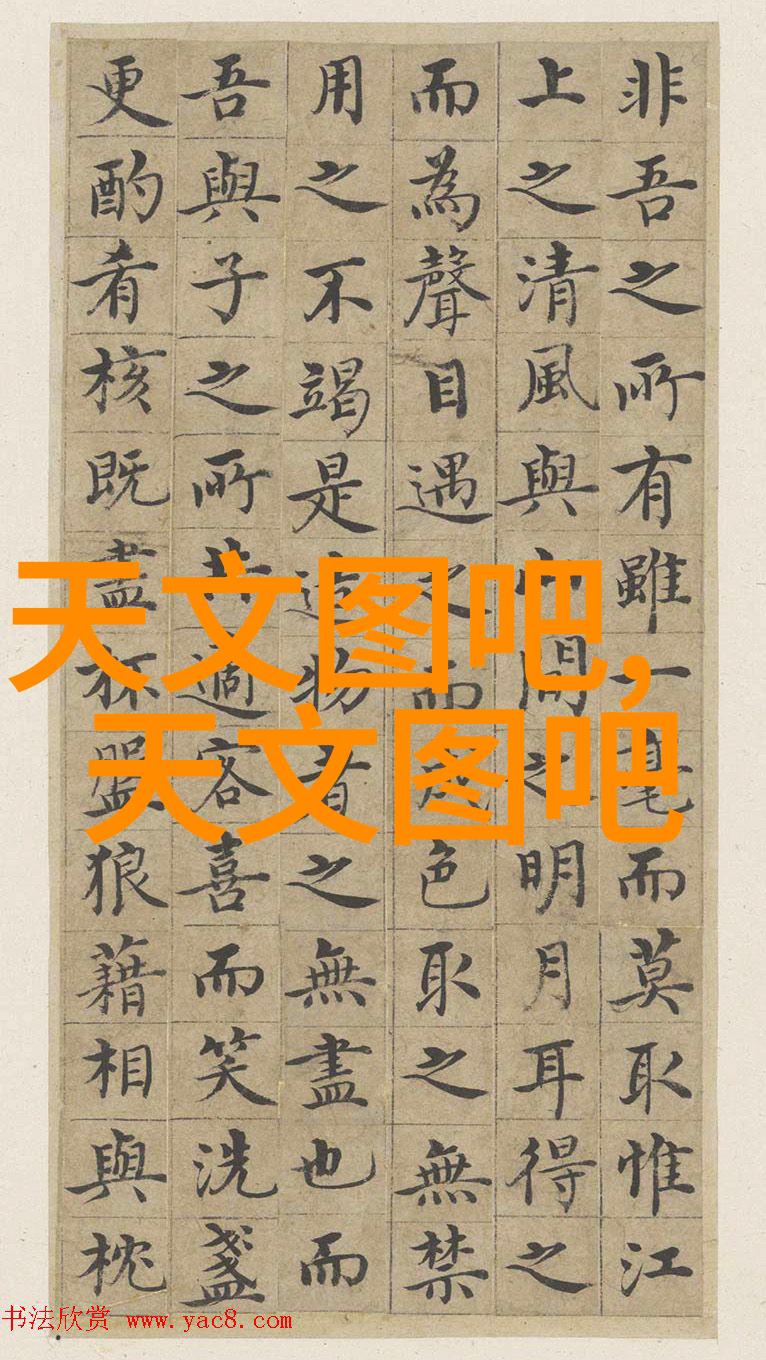 非吾之所有雖一毫而莫取惟江
上之清風與山間之明月耳得之
而為聲目遇之而成色取之無禁
用之不竭是造物者之無盡也而
吾與子之所共適客喜而笑洗盞
更酌肴核既盡杯盤狼藉相與枕
天文图吧,
天文图吧
书法欣赏 www.yac8.com